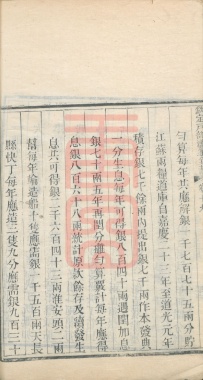 勻算每年共應解銀一千七百七十五兩分貯
江蘇兩糧道庫自嘉慶二十三年至道光元年
積存銀七千餘兩內提出銀七千兩作本發典
一分生息每年可得銀八百四十兩遇閏加息
銀七十兩五年再閏分攤勻算計每年應得
息銀八百六十八兩統計原款餘存及續發生
息共可得銀二千六百四十三兩淮安頭二兩
幫每年輪造船十隻應需銀一千五百兩大長
縣快丁每年應造三隻九分應需銀九百二十